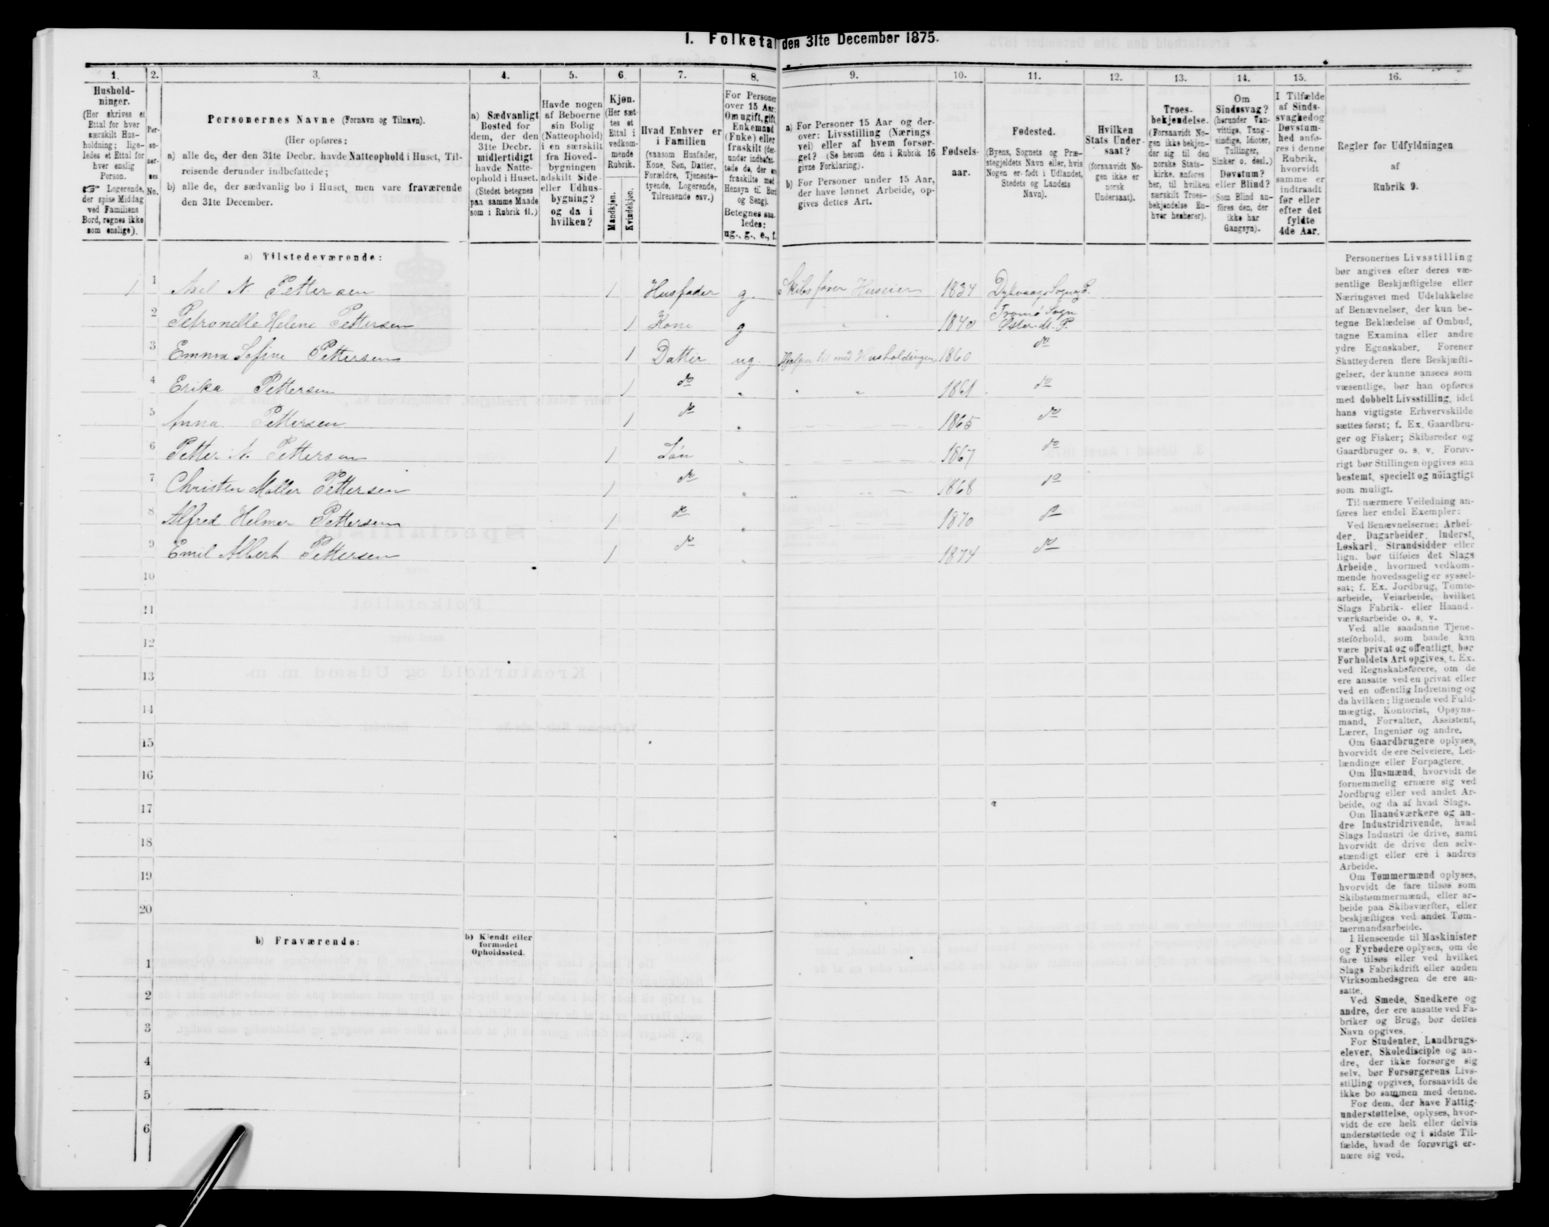 I. Folketal den 31te December 1875.
1.
Hushold-
ninger.
(Her skrives et
Ettal for hver
særskilt Hus-
holdning; lige-
ledes et Ettal for
hver enslig
Person.
☞ Logerende,
der spise Middag
ved Familiens
Bord, regnes ikke
som enslige).
2.
Per-
so-
ner-
nes
No.
3.
Personernes Navne (Fornavn og Tilnavn).
(Her opføres:
a) alle de, der den 31te Decbr. havde Natteophold i Huset, Til-
reisende derunder indbefattede;
b) alle de, der sædvanlig bo i Huset, men vare fraværende
den 31te December.
4.
a) Sædvanligt
Bosted for
dem, der den
31te Decbr.
midlertidigt
havde Natte-
ophold i Huset.
(Stedet betegnes
paa samme Maade
som i Rubrik 11.)
5.
Havde nogen
af Beboerne
sin Bolig
(Natteophold)
i en særskilt
fra Hoved-
bygningen
adskilt Side-
eller Udhus-
bygning?
og da i
hvilken?
6.
Kjøn.
(Her sæt-
tes et
Ettal i
vedkom-
mende
Rubrik.
Mandkjøn.
Kvindekjøn.
7.
Hvad Enhver er
i Familien
(saasom Husfader,
Kone, Søn, Datter,
Forældre, Tjeneste-
tyende, Logerende,
Tilreisende osv.)
8.
For Personer
over 15 Aar:
Om ugift, gift,
Enkemand
(Enke) eller
fraskilt (der-
under indbefat-
tede de, der ere
fraskilte med
Hensyn til Bord
og Seng).
Betegnes saa-
ledes:
ug., g., e., f.
9.
a) For Personer 15 Aar og der-
over: Livsstilling (Nærings
vei) eller af hvem forsør-
get? (Se herom den i Rubrik 16
givne Forklaring).
b) For Personer under 15 Aar,
der have lønnet Arbeide, op-
gives dettes Art.
10.
Fødsels-
aar.
11.
Fødested.
(Byens, Sognets og Præ-
stegjeldets Navn eller, hvis
Nogen er født i Udlandet,
Stedets og Landets
Navn).
12.
Hvilken
Stats Under-
saat?
(forsaavidt No-
gen ikke er
norsk
Undersaat).
13.
Troes-
bekjendelse.
(Forsaavidt No-
gen ikke bekjen-
der sig til den
norske Stats-
kirke, anføres
her, til hvilken
særskilt Troes-
bekjendelse En-
hver henhører).
14.
Om
Sindssvag?
(herunder Van-
vittige, Tung-
sindige, Idioter,
Tullinger,
Sinker o. desl.)
Døvstum?
eller Blind?
(Som Blind an-
føres den, der
ikke har
Gangsyn).
15.
I Tilfælde
af Sinds-
svaghed og
Døvstum-
hed anfø-
res i denne
Rubrik,
hvorvidt
samme er
indtraadt
før eller
efter det
fyldte
4de Aar.
16.
Regler for Udfyldningen
af
Rubrik 9.
a) Tilstedeværende:
1 1 Axel N. Pettersen 1 Husfader g. Skibsfører Huseier 1834 Dybvaag Sogn P.
2 Petronelle Helene Pettersen 1 Kone g " " 1840 Tromø Sogn Øster M. P.
3 Emma Sofine Pettersen 1 Datter ug. Hjælper til med Husholdningen 1860 do
4 Erika Pettersen 1 do " " " 1861 do
5 Anna Pettersen 1 do " 1865 do
6 Petter A. Pettersen 1 Søn 1867 do
7 Christen Møller Pettersen 1 do 1868 do
8 Alfred Helmer Pettersen 1 do 1870 do
9 Emil Albert Pettersen 1 do 1874 do
10
11
12
13
14
15
16
17
18
19
20
b) Fraværende:
b) Kjendt eller
formodet
Opholdssted.
1
2
3
4
5
6
Personernes Livsstilling
bør angives efter deres væ-
sentlige Beskjæftigelse eller
Næringsvei med Udelukkelse
af Benævnelser, der kun be-
tegne Beklædelse af Ombud,
tagne Examina eller andre
ydre Egenskaber. Forener
Skatteyderen flere Beskjæfti-
gelser, der kunne ansees som
væsentlige, bør han opføres
med dobbelt Livsstilling, idet
hans vigtigste Erhvervskilde
sættes først; f. Ex. Gaardbru-
ger og Fisker; Skibsreder og
Gaardbruger o. s. v. Forøv-
rigt bør Stillingen opgives saa
bestemt, specielt og nøiagtigt
som muligt.
Til nærmere Veiledning an-
føres her endel Exempler:
Ved Benævnelserne: Arbei-
der, Dagarbeider, Inderst,
Løskarl, Strandsidder eller
lign. bør tilføies det Slags
Arbeide, hvormed vedkom-
mende hovedsagelig er syssel-
sat; f. Ex. Jordbrug, Tomte-
arbeide, Veiarbeide, hvilket
Slags Fabrik- eller Haand-
værksarbeide o. s. v.
Ved alle saadanne Tjene-
steforhold, som baade kan
være privat og offentligt, bør
Forholdets Art opgives, t. Ex.
ved Regnskabsførere, om de
ere ansatte ved en privat eller
ved en offentlig Indretning og
da hvilken; lignende ved Fuld-
mægtig, Kontorist, Opsyns-
mand, Forvalter, Assistent,
Lærer, Ingeniør og andre.
Om Gaardbrugere oplyses,
hvorvidt de ere Selveiere, Lei-
lændinge eller Forpagtere.
Om Husmænd, hvorvidt de
fornemmelig ernære sig ved
Jordbrug eller ved andet Ar-
beide, og da af hvad Slags.
Om Haandværkere og an-
dre Industridrivende, hvad
Slags Industri de drive, samt
hvorvidt de drive den selv-
stændigt eller ere i andres
Arbeide.
Om Tømmermænd oplyses,
hvorvidt de fare tilsøs som
Skibstømmermænd, eller ar-
beide paa Skibsværfter, eller
beskjæftiges ved andet Tøm-
mermandsarbeide.
I Henseende til Maskinister
og Fyrbødere oplyses, om de
fare tilsøs eller ved hvilket
Slags Fabrikdrift eller anden
Virksomhedsgren de ere an-
satte.
Ved Smede, Snedkere og
andre, der ere ansatte ved Fa-
briker og Brug, bør dettes
Navn opgives.
For Studenter, Landbrugs-
elever, Skoledisciple og an-
dre, der ikke forsørge sig
selv, bør Forsørgerens Livs-
stilling opgives, forsaavidt de
ikke bo sammen med denne.
For dem, der have Fattig-
understøttelse, oplyses, hvor-
vidt de ere helt eller delvis
understøttede og i sidste Til-
fælde, hvad de forøvrigt er-
nære sig ved.